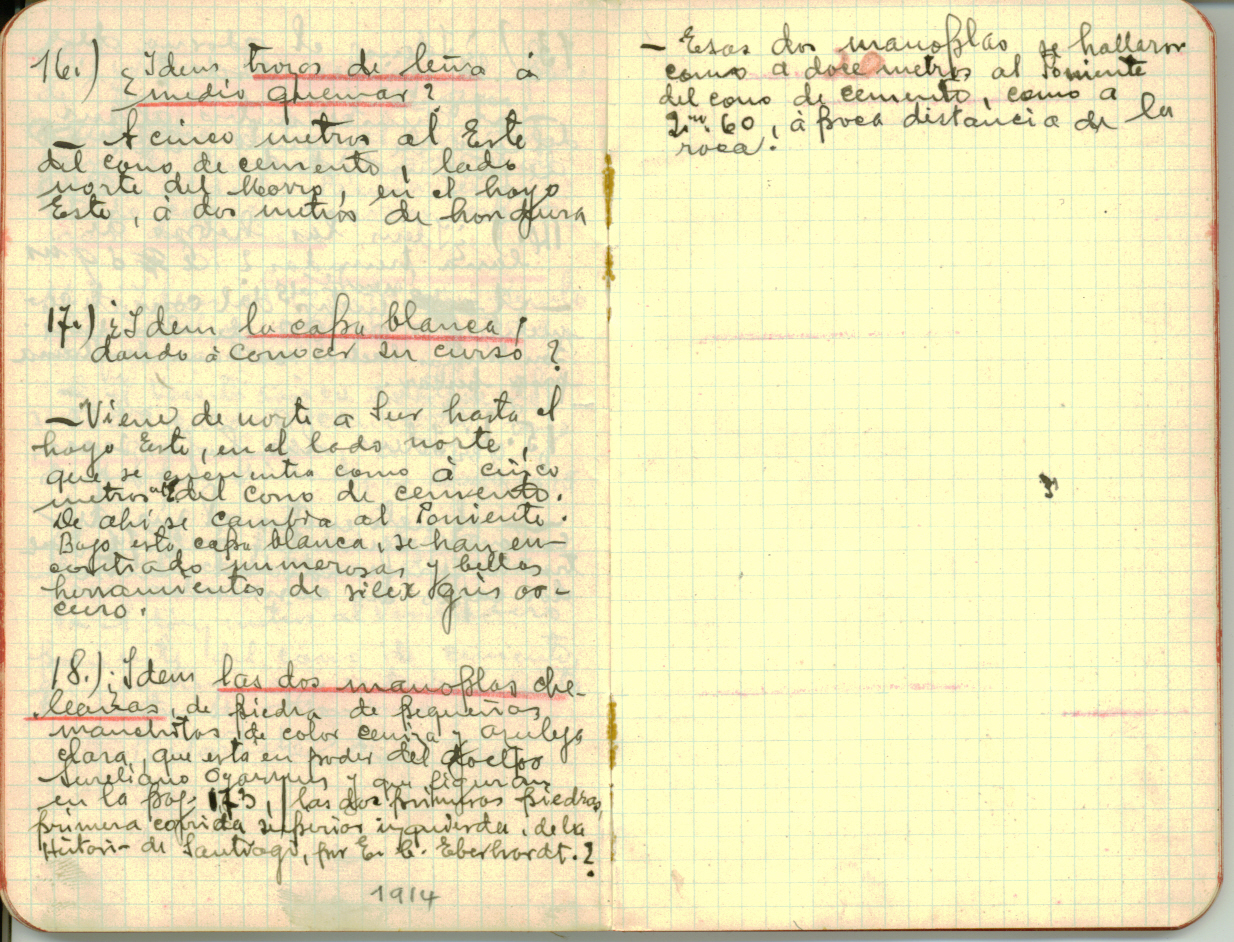 16.) ¿Idem, trozos de leña à
medio quemar?
— A cinco metros al Este
del cono de cemento, lado
norte del Morro, en el hoyo
Este, à dos metros de hondura
17.) ¿Idem la capa blanca,
dando à conocer su curso?
— Viene de norte a Sur hasta el
hoyo Este, en el lado norte,
que se encuentra como à cinco
metros al E del cono de cemento.
De ahí se cambia al Poniente.
Bajo esta capa blanca, se han en-
contrado numerosas y bellas
herramientas de silex gris os-
curo.
18.) ¿Idem las dos manoplas che-
leanas, de piedra de pequeñas
manchitas de color ceniza y azuleja
clara, que está en poder del doctor
Aureliano Oyarzun y que figuran
en la pag. 173, las dos primeras piedras,
primera corrida superior izquierda, de la
Histori- de Santiago, por E. C. Eberhardt.?
1914
— Esas dos manoplas se hallaron
como a doce metros al Poniente
del cono de cemento, como a
2m.60, à poca distancia de la
roca.